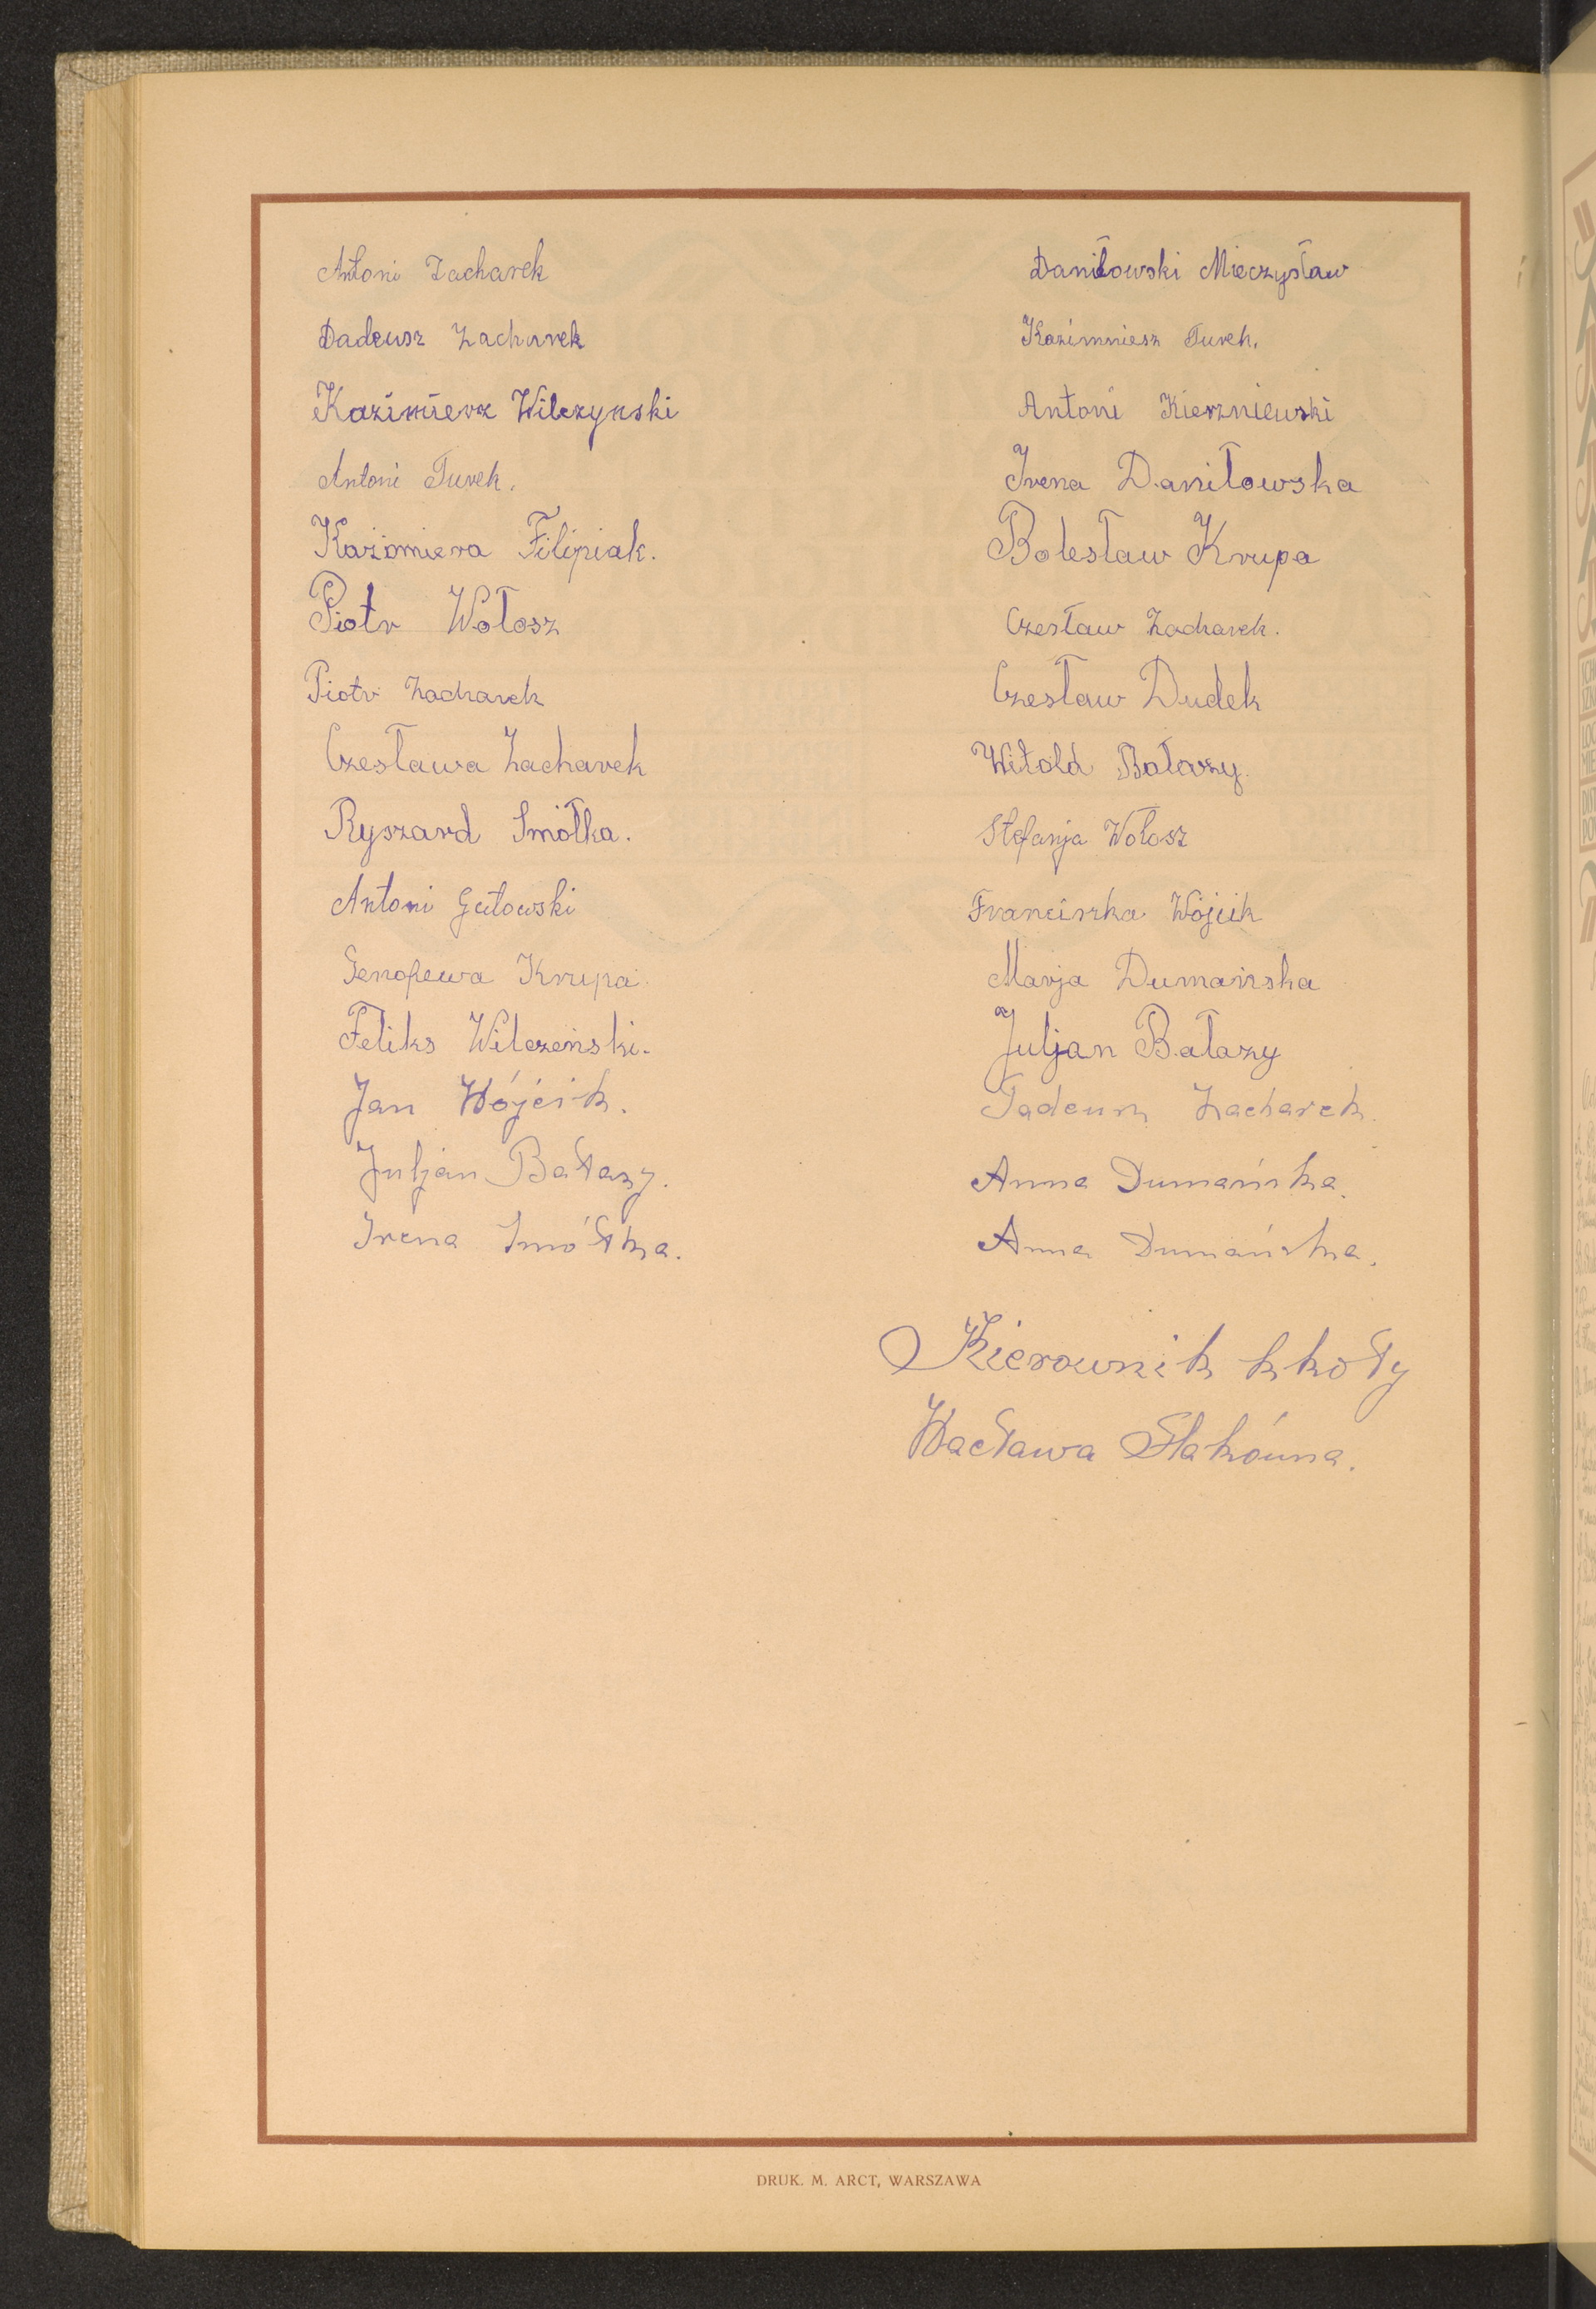 Antoni Zacharek
Dadeusz Zacharek
Kazimierz Wilczynski
Antoni Turek.
Kazimiera Filipiak.
Piotr Wołosz
Piotr Zacharek
Czesława Zacharek
Ryszard Smółka.
Antoni Gutowski
Genofewa Krupa.
Feliks Wilczeński.
Jan Wójcik.
Juljan Bałazy.
Irena Smółka.
Daniłowski Mieczysław
Kazimniesz Turek.
Antoni Kierzniewski
Irena Daniłowska
Bolesław Krupa
Czesław Zacharek.
Czesław Dudek
Witold Bałazy.
Stefanja Wołosz
Franciszka Wójcik
Marja Dumańska
Juljan Bałazy
Tadeusz Zacharek.
Anna Dumańska.
Anna Dumańska.
Kierownik szkoły
Wacława
DRUK. M. ARCT, WARSZAWA